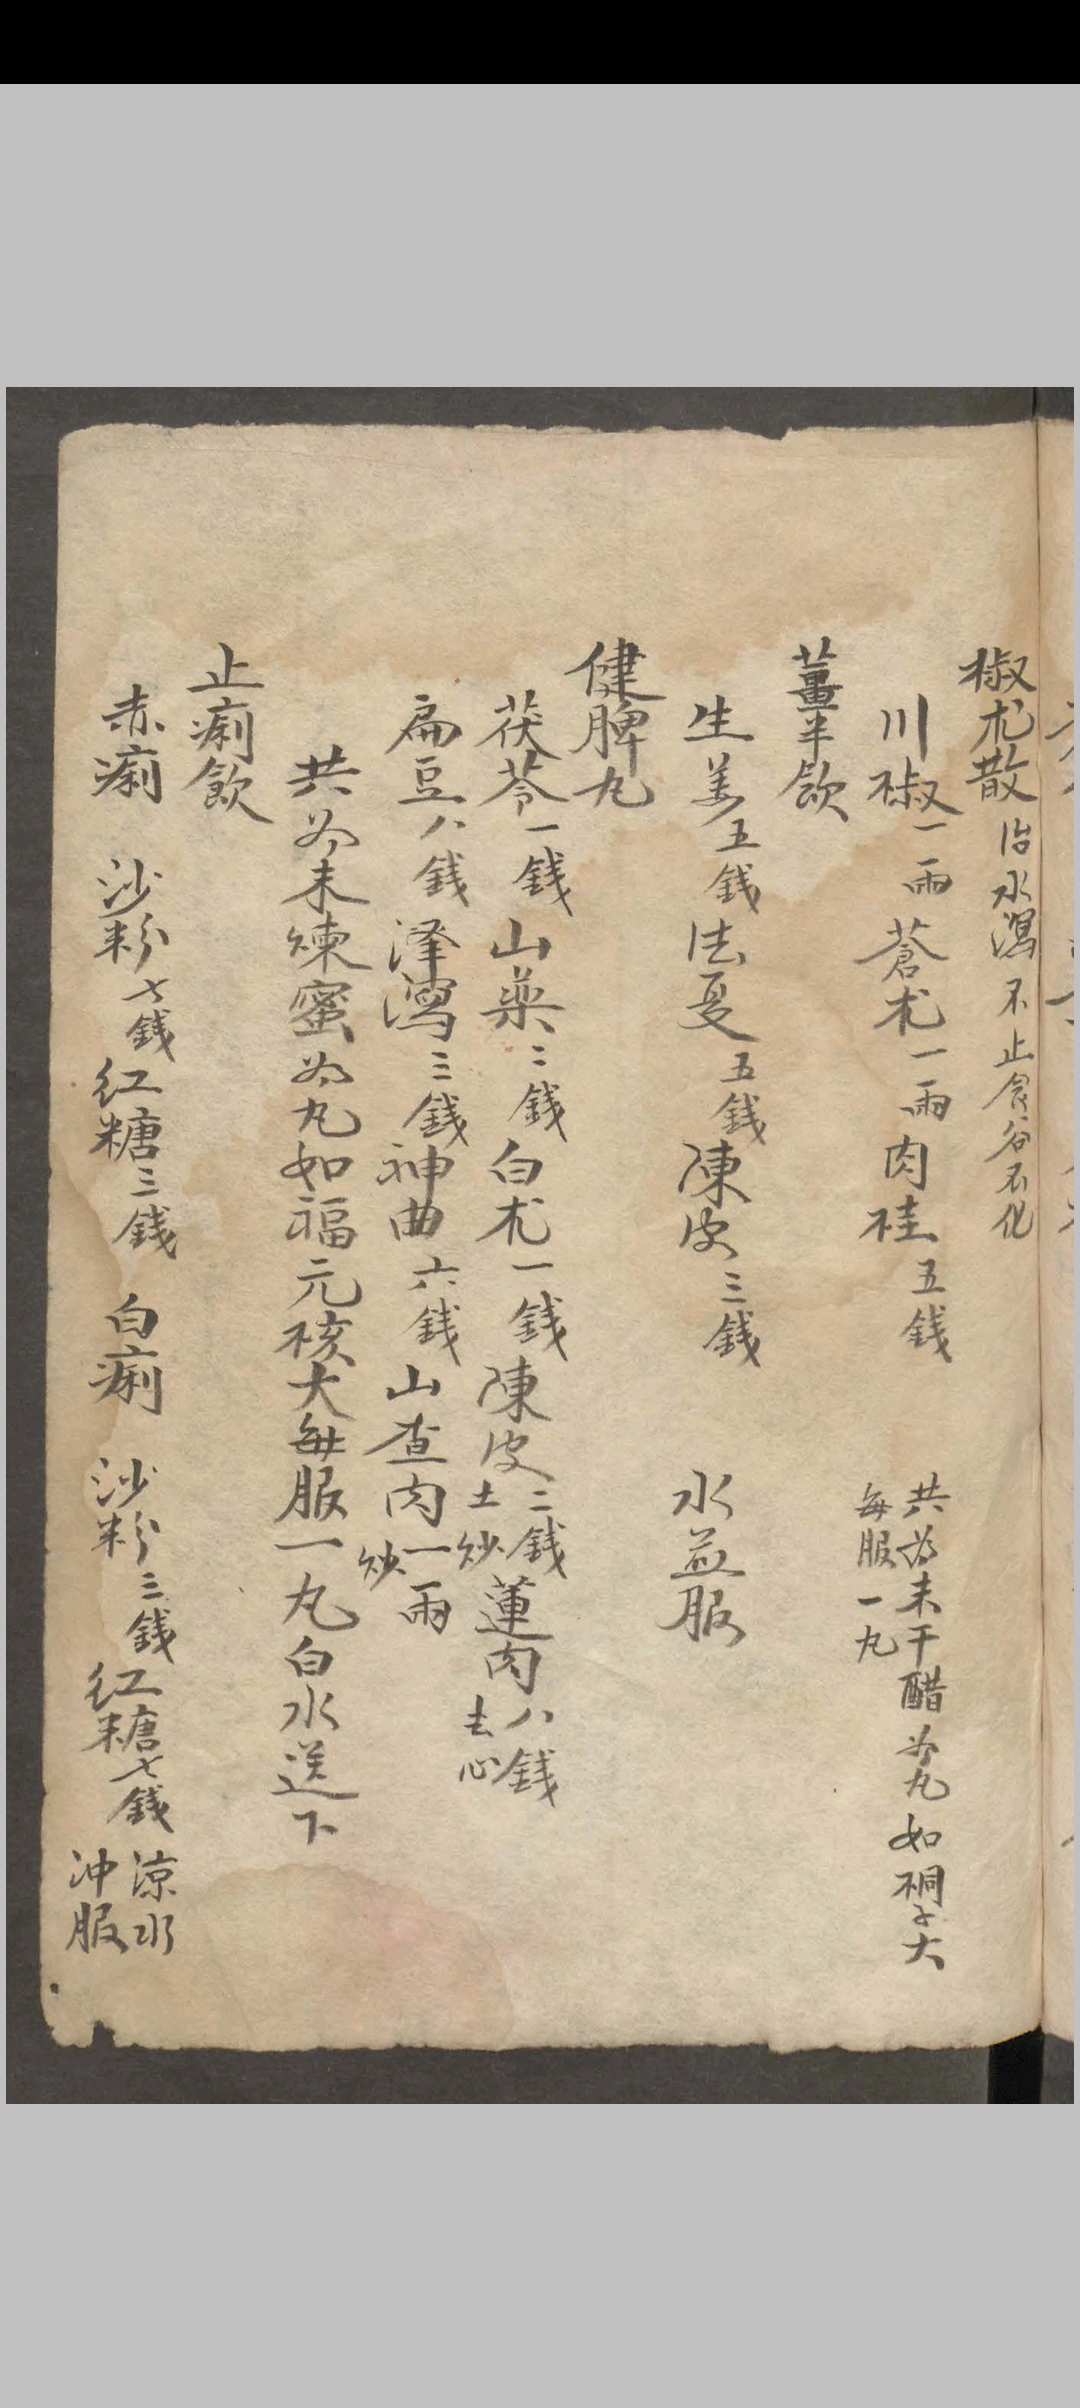 椒朮散 治水瀉不止食谷不化
川椒一兩 蒼朮一兩 肉桂五錢 共为末干醋为丸如桐子大 每服一丸
薑半飲
生姜五錢 法夏五錢 陳皮三錢 水益服
健脾丸
茯苓一錢 山藥二錢 白朮一錢 陳皮二錢土炒 蓮肉八錢去心
扁豆八錢 泽瀉三錢 神曲六錢 山查肉一兩炒
共为末煉蜜为丸如福元核大每服一丸白水送下
止痢飲
赤痢 沙粉七錢 红糖三錢 白痢 沙粉三錢 红糖七錢 涼水冲服